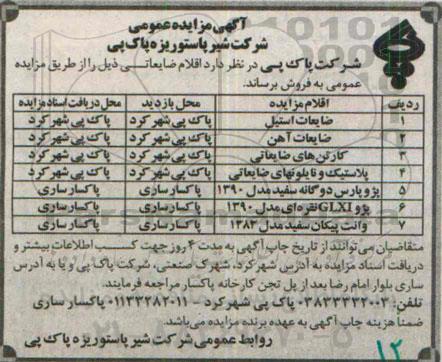 آگهی مزایده عمومی
شرکت شیر پاستوریزه پاک پی
شرکت پاک پی در نظر دارد اقلام ضایعاتی ذیل را از طریق مزایده
عمومی به فروش برساند.
ردیف اقلام مزایده محل بازدید محل دریافت اسناد مزایده
۱ ضایعات استیل پاک پی شهر کرد پاک پی شهر کرد
۲ ضایعات آهن پاک پی شهر کرد پاک پی شهر کرد
۳ کارتن های ضایعاتی پاک پی شهر کرد پاک پی شهر کرد
۴ پلاستیک و نایلونهای ضایعاتی پاک پی شهر کرد پاک پی شهر کرد
۵ پژو پارس دوگانه سفید مدل ۱۳۹۰ پاکسار ساری پاکسار ساری
۶ پژو GLXI نقره ای مدل ۱۳۹۰ پاکسار ساری پاکسار ساری
۷ وانت پیکان سفید مدل ۱۳۸۳ پاکسار ساری پاکسار ساری
متقاضیان می توانند از تاریخ چاپ آگهی به مدت ۴ روز جهت کسب اطلاعات بیشتر و
دریافت اسناد مزایده به آدرس شهر کرد، شهرک صنعتی، شرکت پاک پی و یا به آدرس
ساری بلوار امام رضا بعد از پل تجن کارخانه پاکسار مراجعه فرمایند.
تلفن: ۰۳۸۳۳۳۳۲۰۰۳ پاک پی شهر کرد - ۰۱۱۳۳۲۸۲۰۱۱ پاکسار ساری
ضمنا هزینه چاپ آگهی به عهده برنده مزایده می باشد.
روابط عمومی شرکت شیر پاستوریزه پاک پی
۱۲